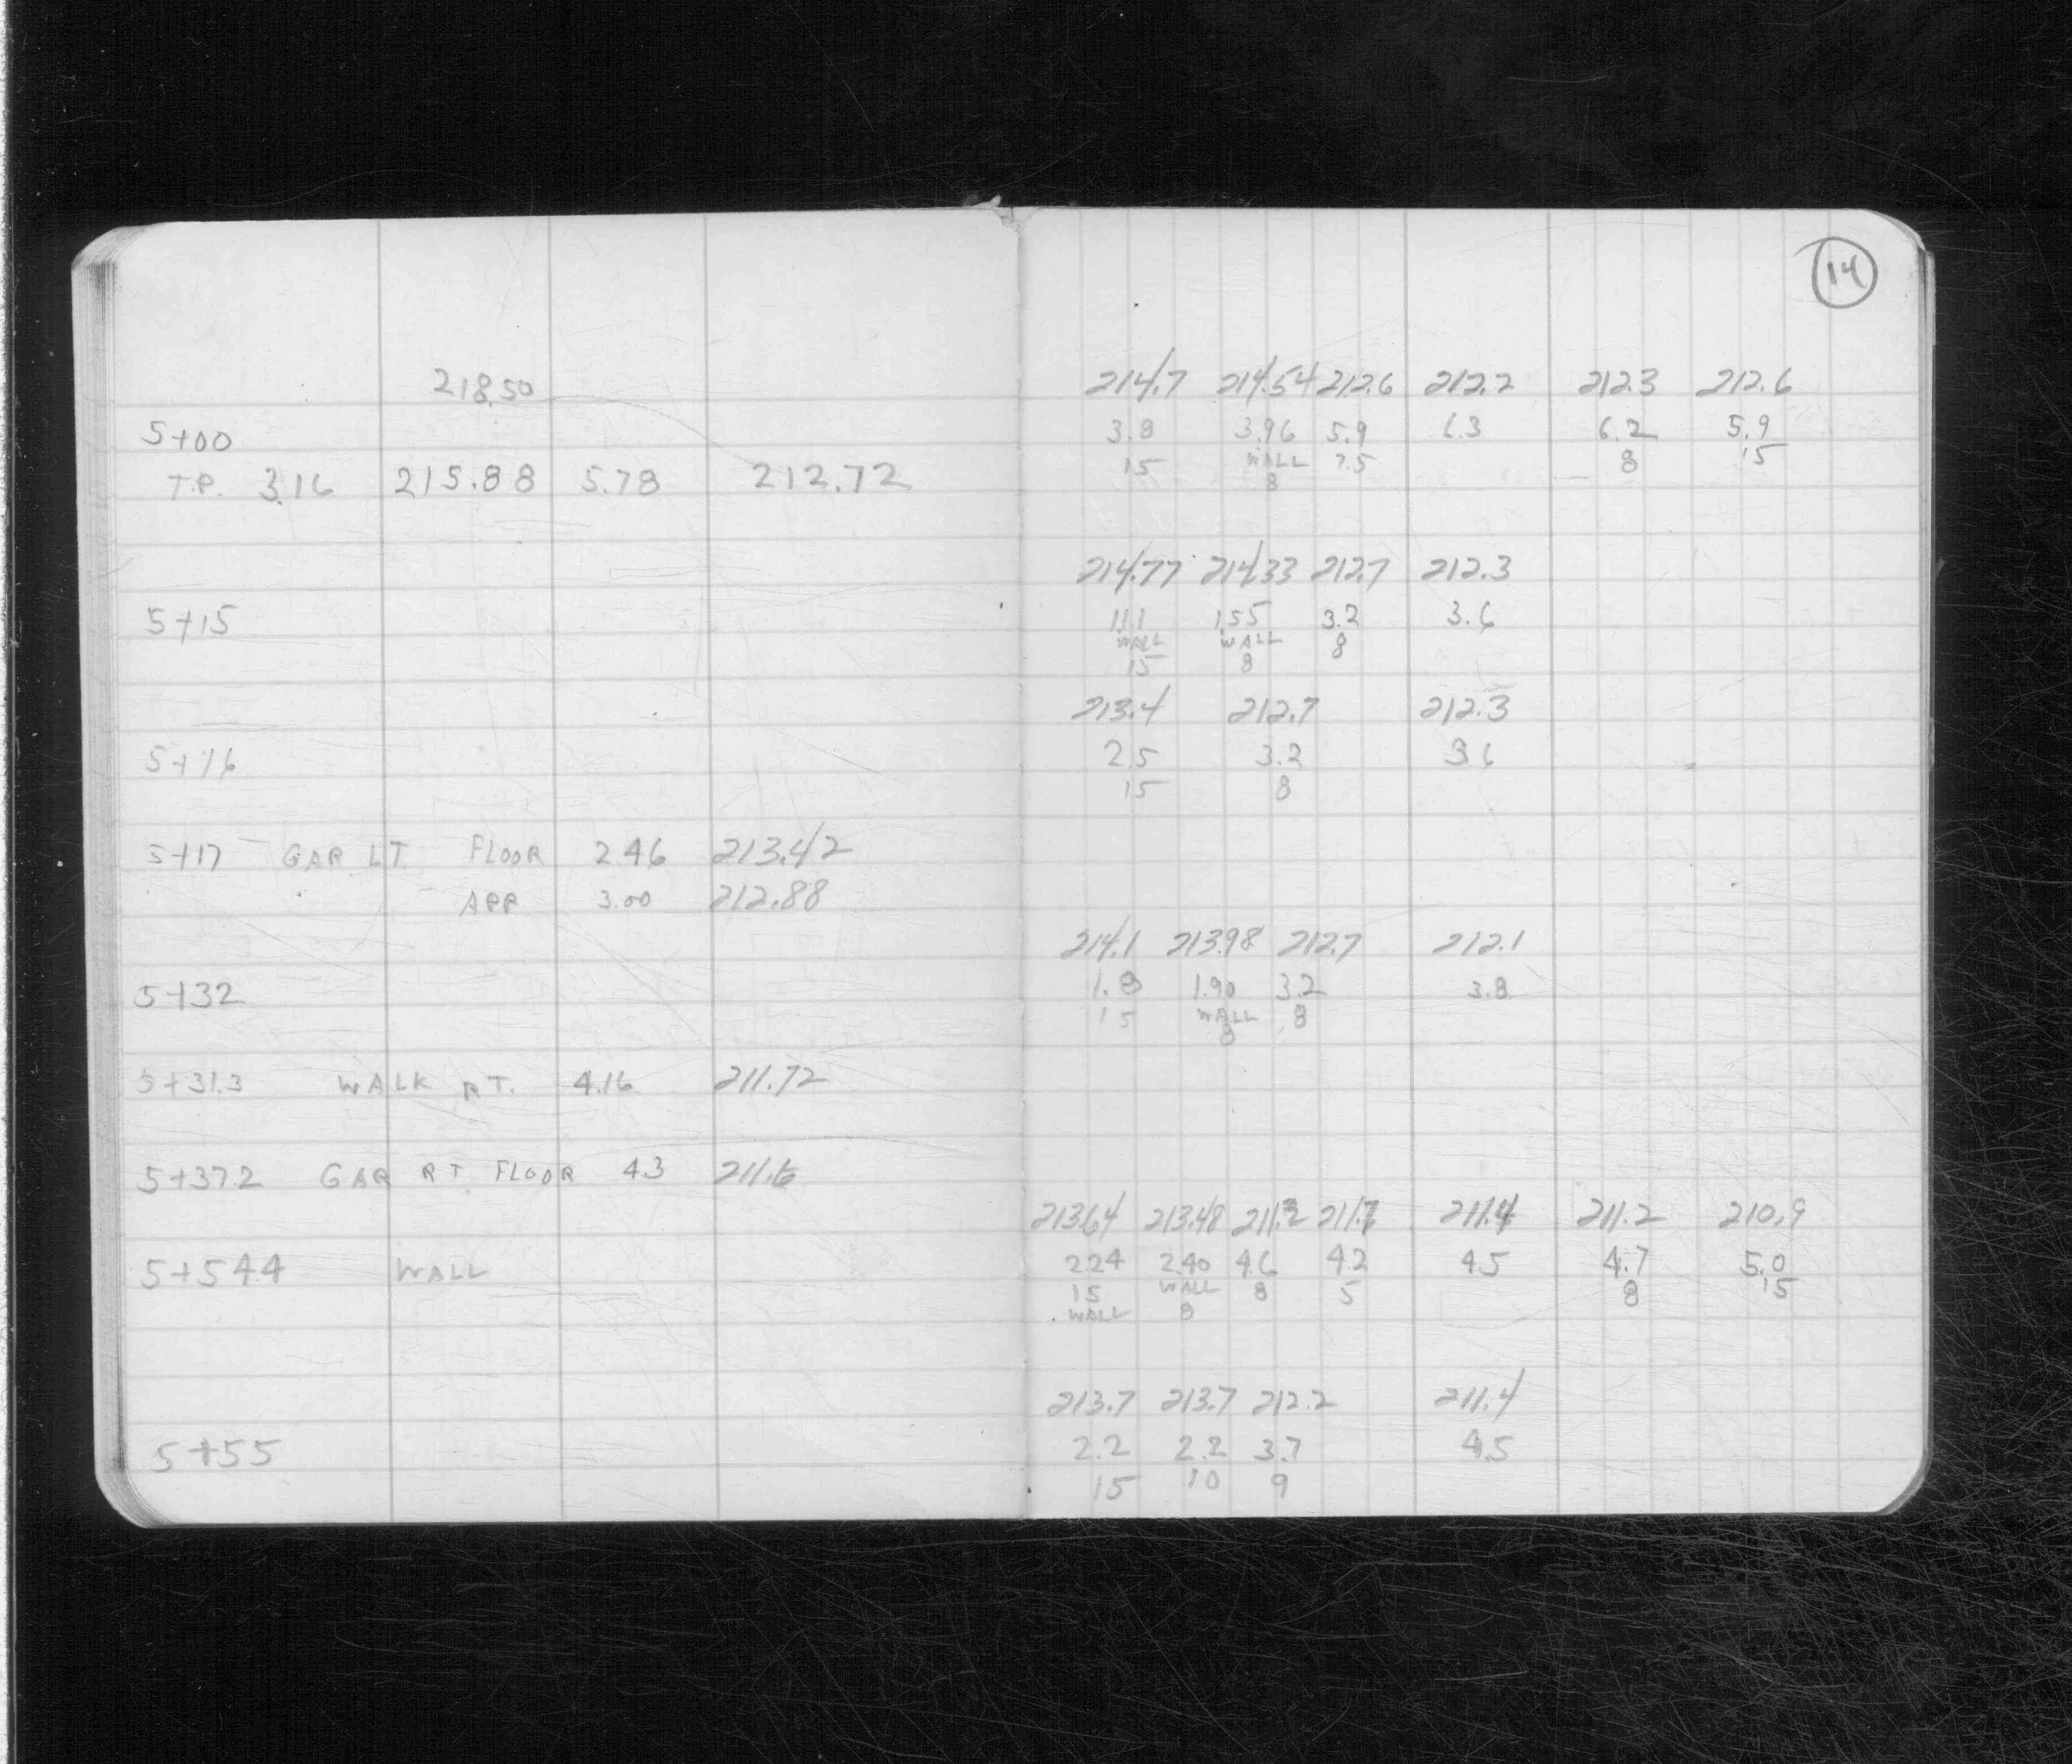 14
218.50 214.7 214.54 212.6 212.2 212.3 212.6
5+00 3.8 3.96 5.9 6.3 6.2 5.9
15 WALL 7.5 8 15
T.P. 3.16 215.88 5.78 212.72 8
214.77 214.33 212.7 212.3
5+15 1.11 1.55 3.2 3.6
WALL WALL 8
15 8
213.4 212.7 212.3
5+16 2.5 3.2 3.6
15 8
5+17 GAR LT. FLOOR 2.46 213.42
APP 3.00 212.88
214.1 213.98 212.7 212.1
5+32 1.8 1.90 3.2 3.8
15 WALL 8
8
5+31.3 WALK RT. 4.16 211.72
5+37.2 GAR RT. FLOOR 4.3 211.6
213.64 213.48 211.3 211.7 211.4 211.2 210.9
5+54.4 WALL 2.24 2.40 4.6 4.2 4.5 4.7 5.0
15 WALL 8 5 8 15
WALL 8
213.7 213.7 212.2 211.4
5+55 2.2 2.2 3.7 4.5
15 10 9